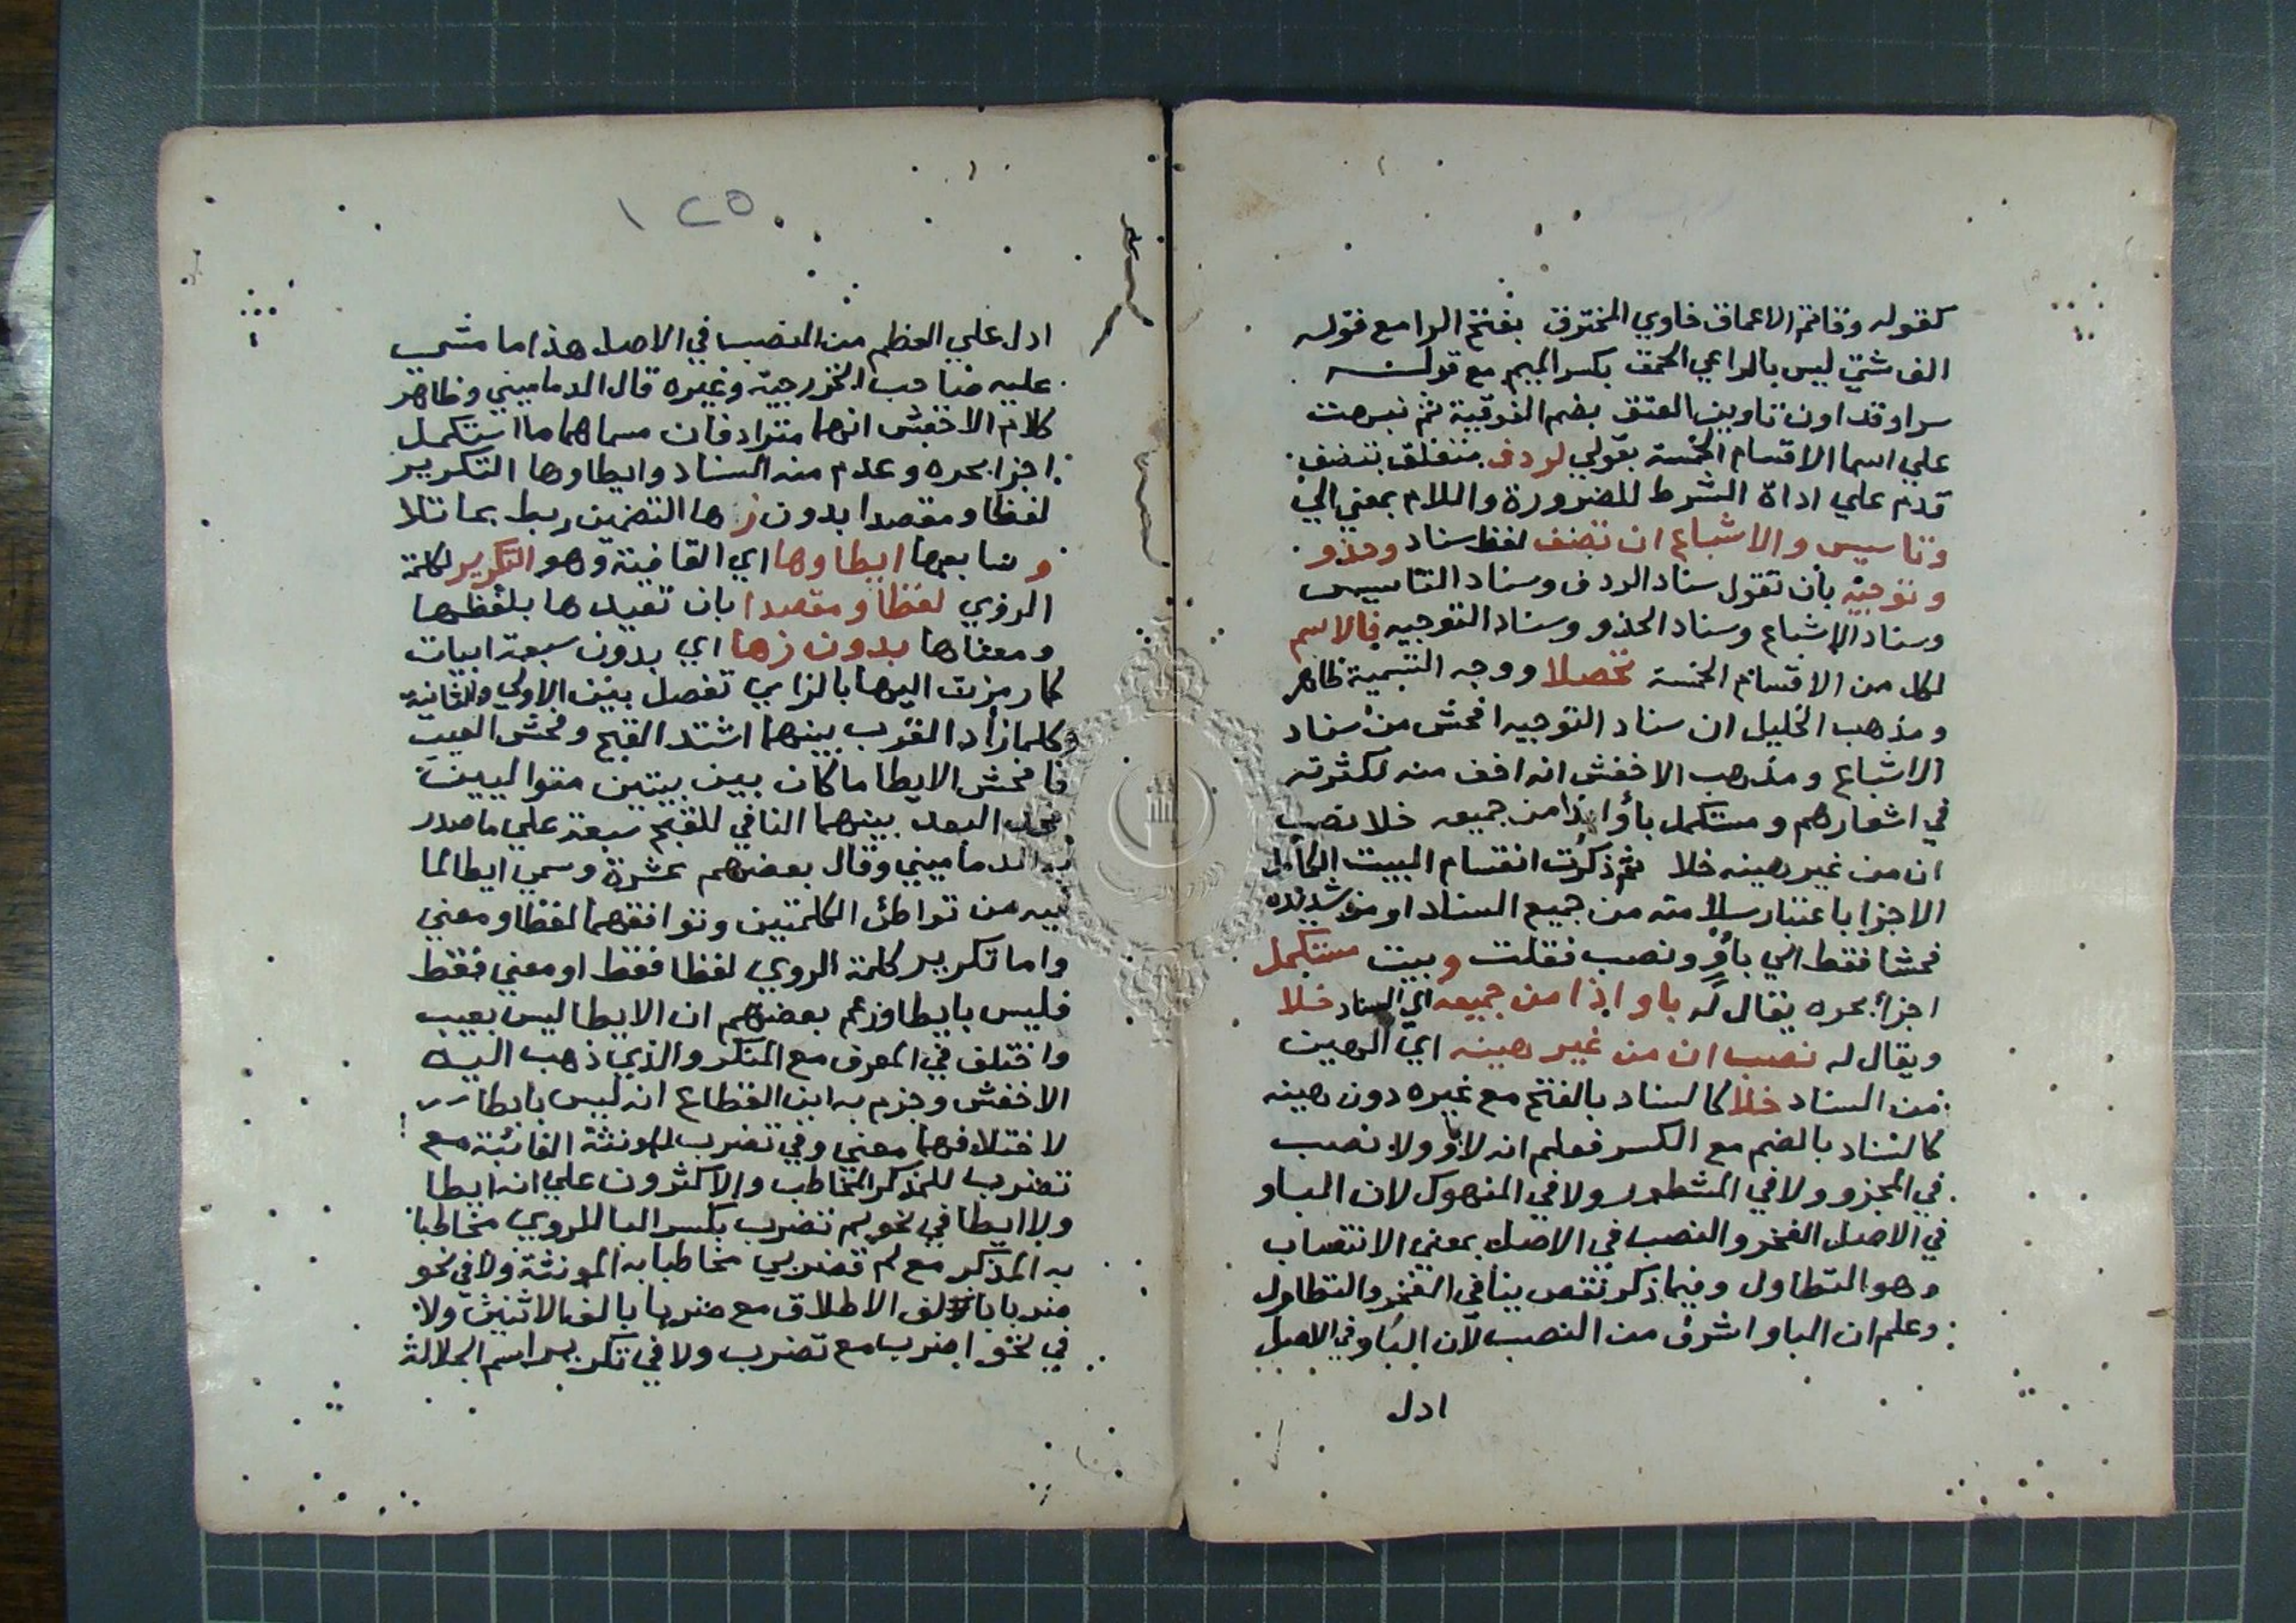 كقوله وقاتم الاعماق خاوي المخترق بفتح الرا مع قوله
الف شتي ليس بالراعي الحمق بكسر الميم مع قوله
سرا وقد اون تاوين العقق بضم الفوقية ثم نبهت
علي اسما الاقسام الخمسة بقولي لردف متعلق بتضف
قدم علي اداة الشرط للضرورة واللام بمعني الي
وتاسيس والاشباع ان تضف لفظ سناد وحذو
وتوجيه بان تقول سناد الردف وسناد التاسيس
وسناد الاشباع وسناد الحذو وسناد التوجيه فالاسم
لكل من الاقسام الخمسة تحصلا ووجه التسمية ظاهر
ومذهب الخليل ان سناد التوجيه افحش من سناد
الاشباع ومذهب الاخفش انه اخف منه لكثرته
في اشعارهم ومستكمل بأو اذا من جميعه خلا نصب
ان من غير هينه خلا ثم ذكرت انقسام البيت الكامل
الاجزا باعتبار سلامته من جميع السناد او من شديده
فحشا فقط الي بأو ونصب فقلت وبيت مستكمل
اجزأ بحره يقال له باو اذا من جميعه اي السناد خلا
ويقال له نصب ان من غير هينه اي الهين
من السناد خلا كالسناد بالفتح مع غيره دون هينه
كالسناد بالضم مع الكسر فعلم انه لا بأو ولا نصب
في المجزو ولا في المشطور ولا في المنهوك لان الباو
في الاصل الفخر والنصب في الاصل بمعني الانتصاب
وهو التطاول وفيما ذكر نقص ينافي الفخر والتطاول
وعلم ان الباو اشرف من النصب لان الباو في الاصل
ادل
١٢٥
ادل علي العظم من النصب في الاصل هذا ما مشي
عليه صاحب الخزرجية وغيره قال الدماميني وظاهر
كلام الاخفش انهما مترادفان مسماهما ما استكمل
اجزا بحره وعدم منه السناد وايطاوها التكرير
لفظا ومقصدا بدون زها التضمين ربط بما تلا
وسابعها ايطاوها اي القافية وهو التكرير لكلمة
الروي لفظا ومقصدا بان تعيدها بلفظها
ومعناها بدون زها اي بدون سبعة ابيات
كما رمزت اليها بالزاي تفصل بين الاولي والثانية
وكلما زاد القرب بينهما اشتد القبح وفحش العيب
فافحش الايطا ما كان بين بيتين متواليين
وحد البعد بينهما النافي للقبح سبعة علي ما صدر
به الدماميني وقال بعضهم عشرة وسمي ايطا لما
فيه من تواطئ الكلمتين وتوافقهما لفظا ومعني
واما تكرير كلمة الروي لفظا فقط او معني فقط
فليس بايطا وزعم بعضهم ان الايطا ليس بعيب
واختلف في المعرف مع المنكر والذي ذهب اليه
الاخفش وجزم به ابن القطاع انه ليس بايطا
لاختلافهما معني وفي تضرب للمونثة الغائبة مع
تضرب للمذكر المخاطب والاكثرون علي انه ايطا
ولا ايطا في نحو لم تضرب بكسر البا للروي مخاطبا
به المذكر مع لم تضربي مخاطبا به المونثة ولا في نحو
ضربا بالف الاطلاق مع ضربا بالف الاثنين ولا
في نحو اضرب مع تضرب ولا في تكرير اسم الجلالة